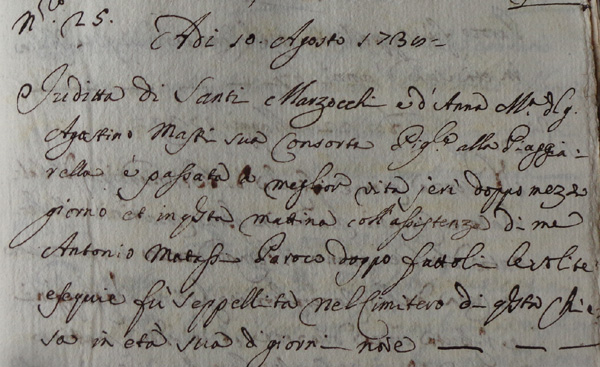 N.º 25.
Adi 10. Agosto 173
Juditta di Santi Marzocchi e d'Anna M.ª del q.
Agostino Masti sua Consorte Pig.le alla Piaggia=
rella è passata a meglior vita jeri doppo mezzo
giorno et in qsta mattina coll'assistenza di me
Antonio Matassi Paroco doppo fattoli le solite
esequie fù seppellita nel Cimitero di qsta Chie=
sa in età sua di giorni nove